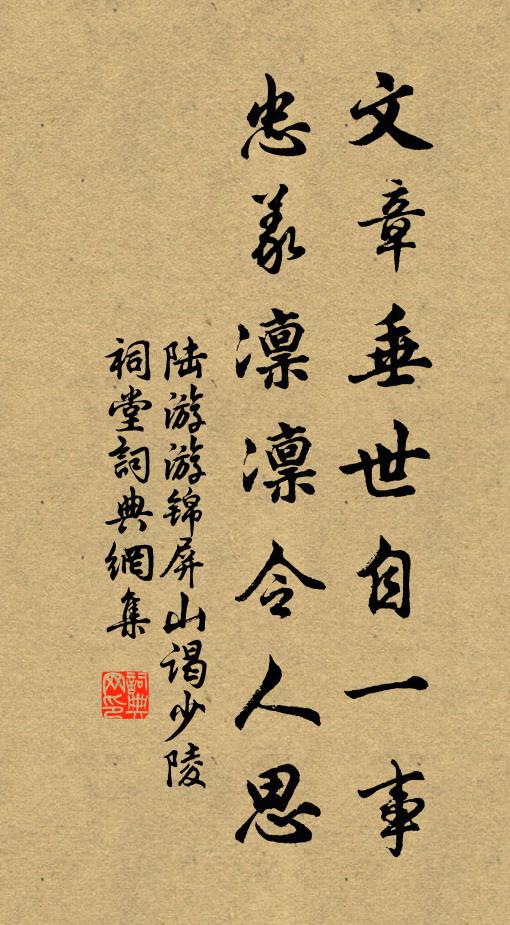 文章垂世自一事
忠義凛凛令人思
陆游游锦屏山谒少陵
祠堂詞典網集
詞典网印